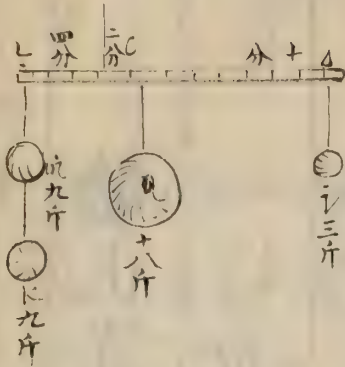 四分
二分
分十
九斤
九斤
十八斤
三斤